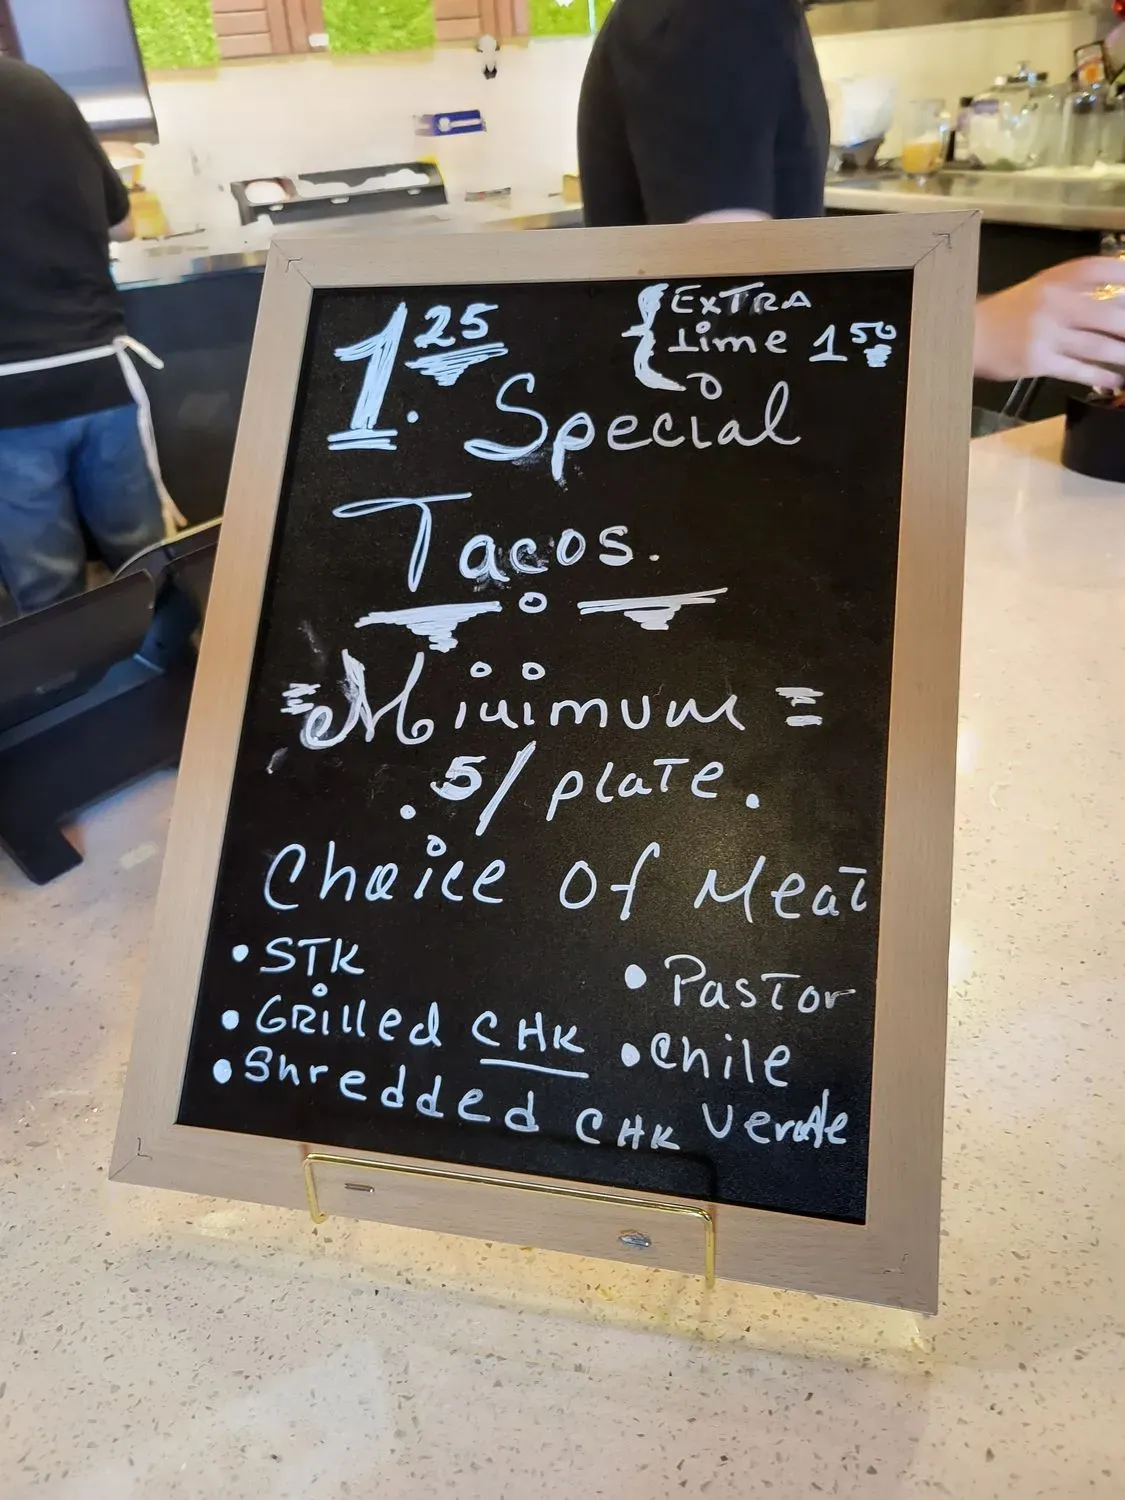 1.25
EXTRA
Lime 1 50
Special
Tacos.
Minimum
. 5/plate.
Choice Of Meat
• STK
• Pastor
• Grilled CHK
• Chile
• Shredded CHK
Verde